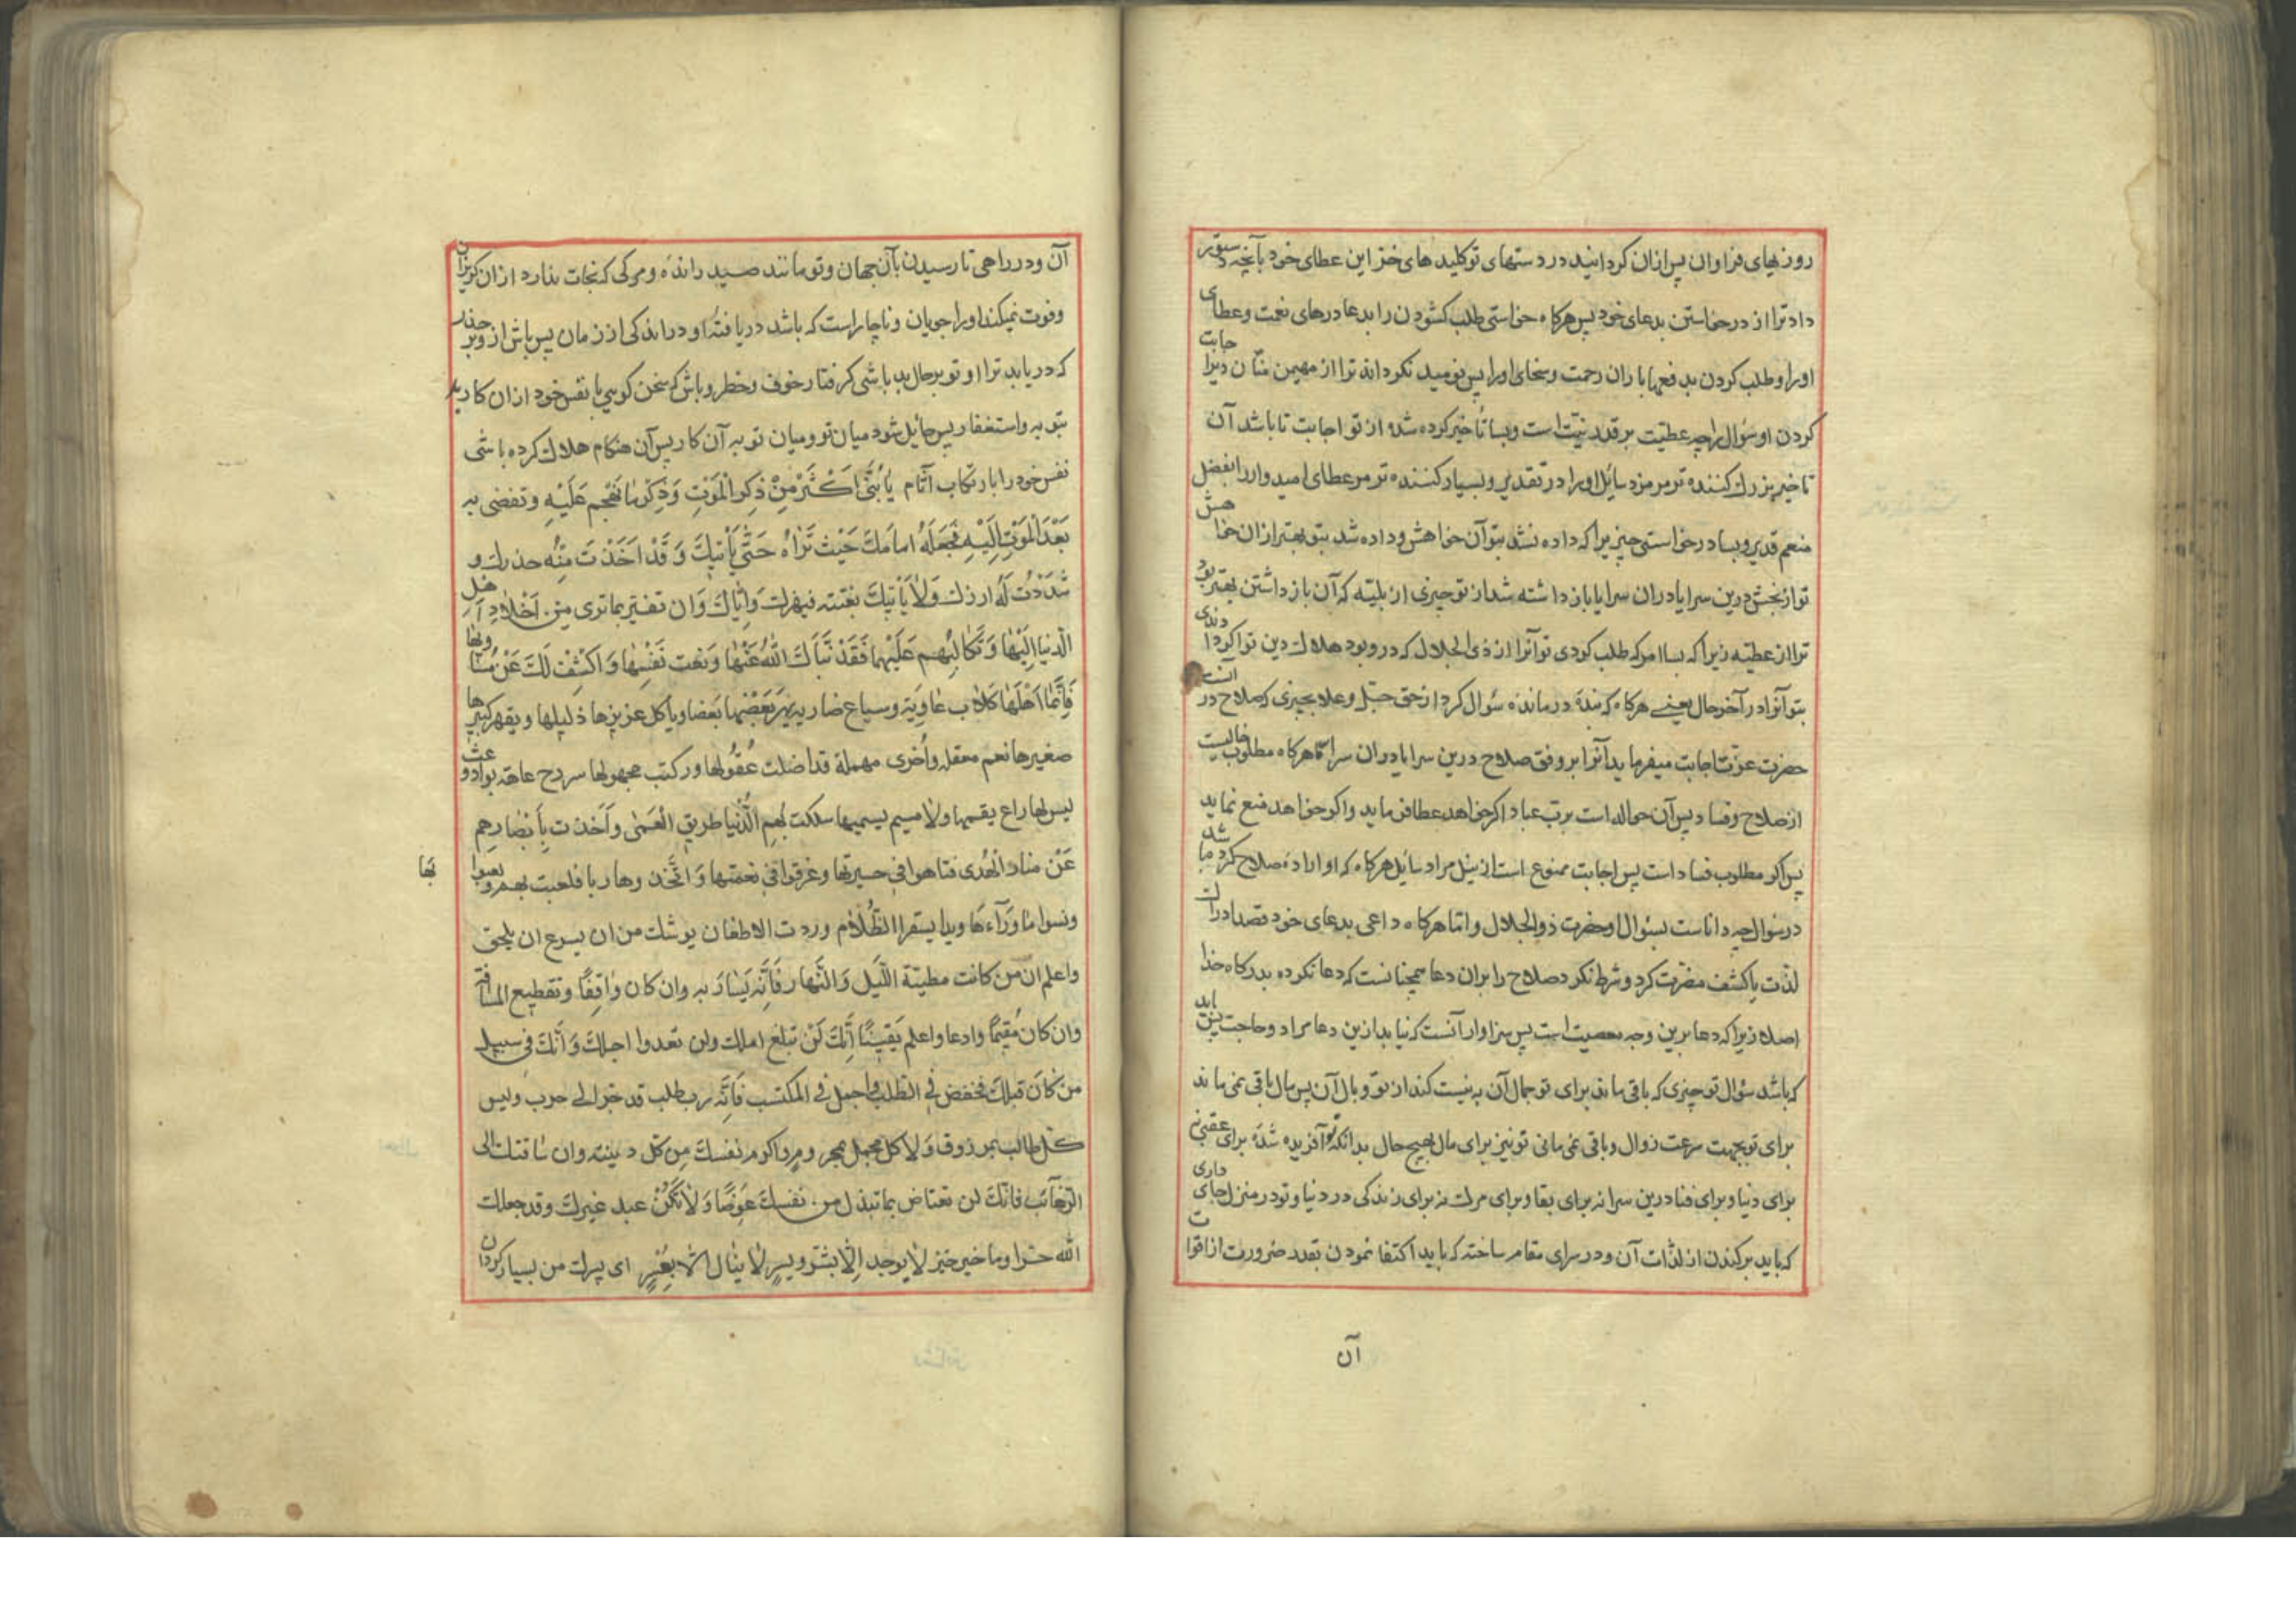 روزیهای فراوان پس ازان کردانید در دستهای تو کلیدهای خزاین عطای خود بآنچه دستور
داد ترا از درخواستن بدعای خود پس هرکاه خواستی طلب کشودن را بدعا درهای نعت وعطای
اورا و طلب کردن بدفعها باران رحمت وسخای اورا پس نومید نکرداند ترا از مهیمن منان دیر اجابت
کردن او سؤال را چه عطیّت برقدر نیّت است وبسا تأخیر کرده شد از تو اجابت تا باشد آن
تاخیر بزرك کننده تر مر مزد سائل اورا در تقدیر و بسیار کننده تر مر عطای امیدوار را بفضل
منعم قدیر و بسا درخواستی چیزیرا که داده نشد بتو آن خواهش وداده شد بتو بهتر ازان خواهش
تو از بخش درین سرا یا دران سرا یا باز داشته شد از تو چیزی از بلیّه که آن باز داشتن بهتر بود
ترا از عطیّه زیرا که بسا امر که طلب کردی تو آنرا از ذی الجلال که در و بود هلاك دین تو اکر دادندی
بتو آنرا در آخر حال یعنے هرکاه که بندهٔ درمانده سؤال کرد از حق جلّ وعلا بچیزی که صلاح در آنست
حضرت عزّت اجابت میفرماید آنرا بر وفق صلاح درین سرا یا دران سرا امّا هرکاه مطلوب خالیست
از صلاح وفساد پس آن حواله است برب عباد اکر خواهد عطا فرماید واکر خواهد منع نماید
پس اکر مطلوب فساد است پس اجابت ممنوع است از نیل مراد سایل هرکاه که او اراده صلاح کرد باشد
در سؤال چه داناست بسؤال او حضرت ذو الجلال و اما هرکاه داعی بدعای خود قصد ادراك
لذّت یا کشف مضرّت کرد وشرط نکرد صلاح را بران دعا همچنانست که دعا نکرده بدرکاه خدا
اصلا زیرا که دعا برین وجه معصیت است پس سزاوار آنست که نیابد ازین دعا مراد و حاجت پس باید
که باشد سؤال تو چیزی که باقی ماند برای تو جمال آن به نیست کند از تو وبال آن پس مال باقی نمی ماند
برای تو بجهت سرعت زوال و باقی نمی مانی تو نیز برای مال بهیچ حال بدانکه تو آفریده شدهٔ برای عقبی نه
برای دنیا وبرای فنا درین سرا نه برای بقا وبرای مرك نه برای زندکی در دنیا و تو در منزل جای داری
که باید برکندن از لذّات آن و در سرای مقام ساخته که باید اکتفا نمودن بقدر ضرورت از اقوات
آن
آن ودر راهی تا رسیدن بآن جهان وتو مانند صید راندهٔ ومرکی که نجات ندارد ازان کریزان
وفوت نمیکند اورا جویان وناچار است که باشد دریافتهٔ او در اندکی از زمان پس باش از وبر حذر
که دریابد ترا او تو بر حال بد باشی کرفتار خوف وخطر وباش که سخن کوی با نفس خود ازان کار بد
بتوبه واستغفار پس حایل شود میان تو ومیان توبه آن کار پس آن هنکام هلاك کرده باشی
نفس خود را بارتکاب آثام یا بُنَّی اَکْثَرْ مِنْ ذِکرِ الْمَوْتِ وَذِکرِ مٰا تَهْجِمِ عَلَیْهِ وتفضی به
بَعْدَ الْمَوْتِ اِلَیْهِ فَجْعَلَهُ امٰامَكَ حَیْثَ تَرٰاهُ حَتّٰی یَأْتِیَكَ وَقَدْ اَخَذْتَ مِنْهُ حذرك و
شَدَدْتَ لَهُ ازرك وَلاٰ یَأْتِیَكَ بَغْتته فبهرك وَاِیّٰاكَ وَان تغتر بماتری من اَخْلادِ اَهْلِ
الدُّنیا اِلَیْهٰا وَتَکٰالِبُهُم عَلَیْهٰا فَقَدْ نَبَّاَكَ اللّٰهُ عَنْهٰا وَنعت نَفْسِهٰا وَاکشِفْ لَكَ عَنْ مسٰاویهٰا
فَاِنَّمٰا اَهْلَهٰا کلاب عٰاوِیَة وسباع ضاریه یَهِرُ بَعْضُهٰا بَعضا ویأکل عزیزها ذلیلها ویقهر کبیرها
صغیرها نعم معقله واُخْری مهملة قد اضلت عُقُولها ورکبت مجهولها سرح عاهة بواد وعث
لیس لها راع یقیمها ولا مسیم یسیمها سلکت بهم الدُّنیا طریق الْعَمٰی وَاَخَذَت بِأَبْصٰارهِم
عَنْ منار الْهُدی فتاهوا فی حسیرتها وغرقوا فی نعمتها وَاتَّخَذ وها ربا فلعبت بهم ولعبوا
بها
ونسوا مٰا وَرٰآءهَا ویدا یسفر الظُّلاٰم وردت الاظعان یوشك من ان یسرع ان یلحق
واعلم ان من کانت مطیّته اللَّیل وَالنَّهار فَاِنَّه یَسٰارَ به وان کان وٰاقِفًا وتقطیع المسافة
وان کان مُقیمًا وادعا واعلم یَقینًا اَنَّكَ لَنْ تبلغ املك ولن تعدوا اجلك وَاَنَّكَ فی سبیل
من کٰانَ قبلك فخفض فی الطلب واجمل فی المکتسب فَاِنَّه رب طلب قد جرالے حرب ولیس
کل طالب بمرزوق وَلا کل مجمل بمحروم واکرم نفسك مِن کلّ دینة وان سٰاقتك الی
الرّغٰآئب فانك لن تعتاض بما تبذل من نفسك عَوضًا وَلاٰ تَکُنْ عبد غیرك وقد جعلك
اللّٰه حرا وما خیر خیز لاٰ یوجد اِلّٰا بشر ویسرٍ لاٰ ینٰال الّا بِعُسْرٍ ای پسرك من بسیار کردان